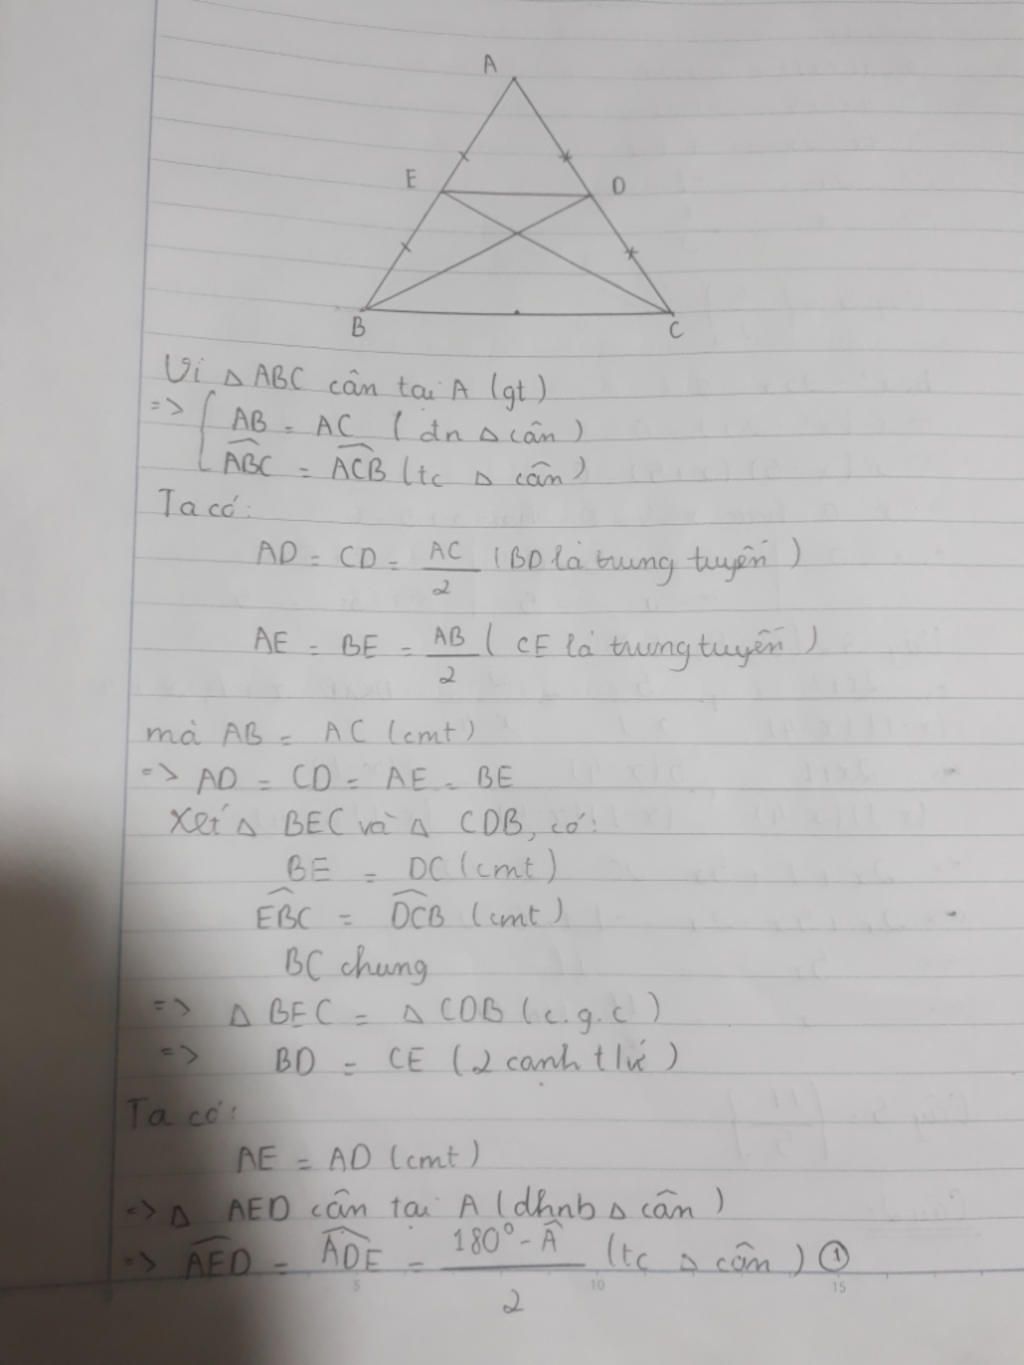 A
E D
B C
Vì Δ ABC cân tại A (gt)
=> { AB = AC (đn Δ cân)
\widehat{ABC} = \widehat{ACB} (tc Δ cân)
Ta có:
AD = CD = AC/2 (BD là trung tuyến)
AE = BE = AB/2 (CE là trung tuyến)
mà AB = AC (cmt)
=> AD = CD = AE = BE
Xét Δ BEC và Δ CDB, có:
BE = DC (cmt)
\widehat{EBC} = \widehat{DCB} (cmt)
BC chung
=> Δ BEC = Δ CDB (c.g.c)
=> BD = CE (2 cạnh t/ứ)
Ta có:
AE = AD (cmt)
=> Δ AED cân tại A (dhnb Δ cân)
=> \widehat{AED} = \widehat{ADE} = (180° - \widehat{A})/2 (tc Δ cân) ①
5 10 15